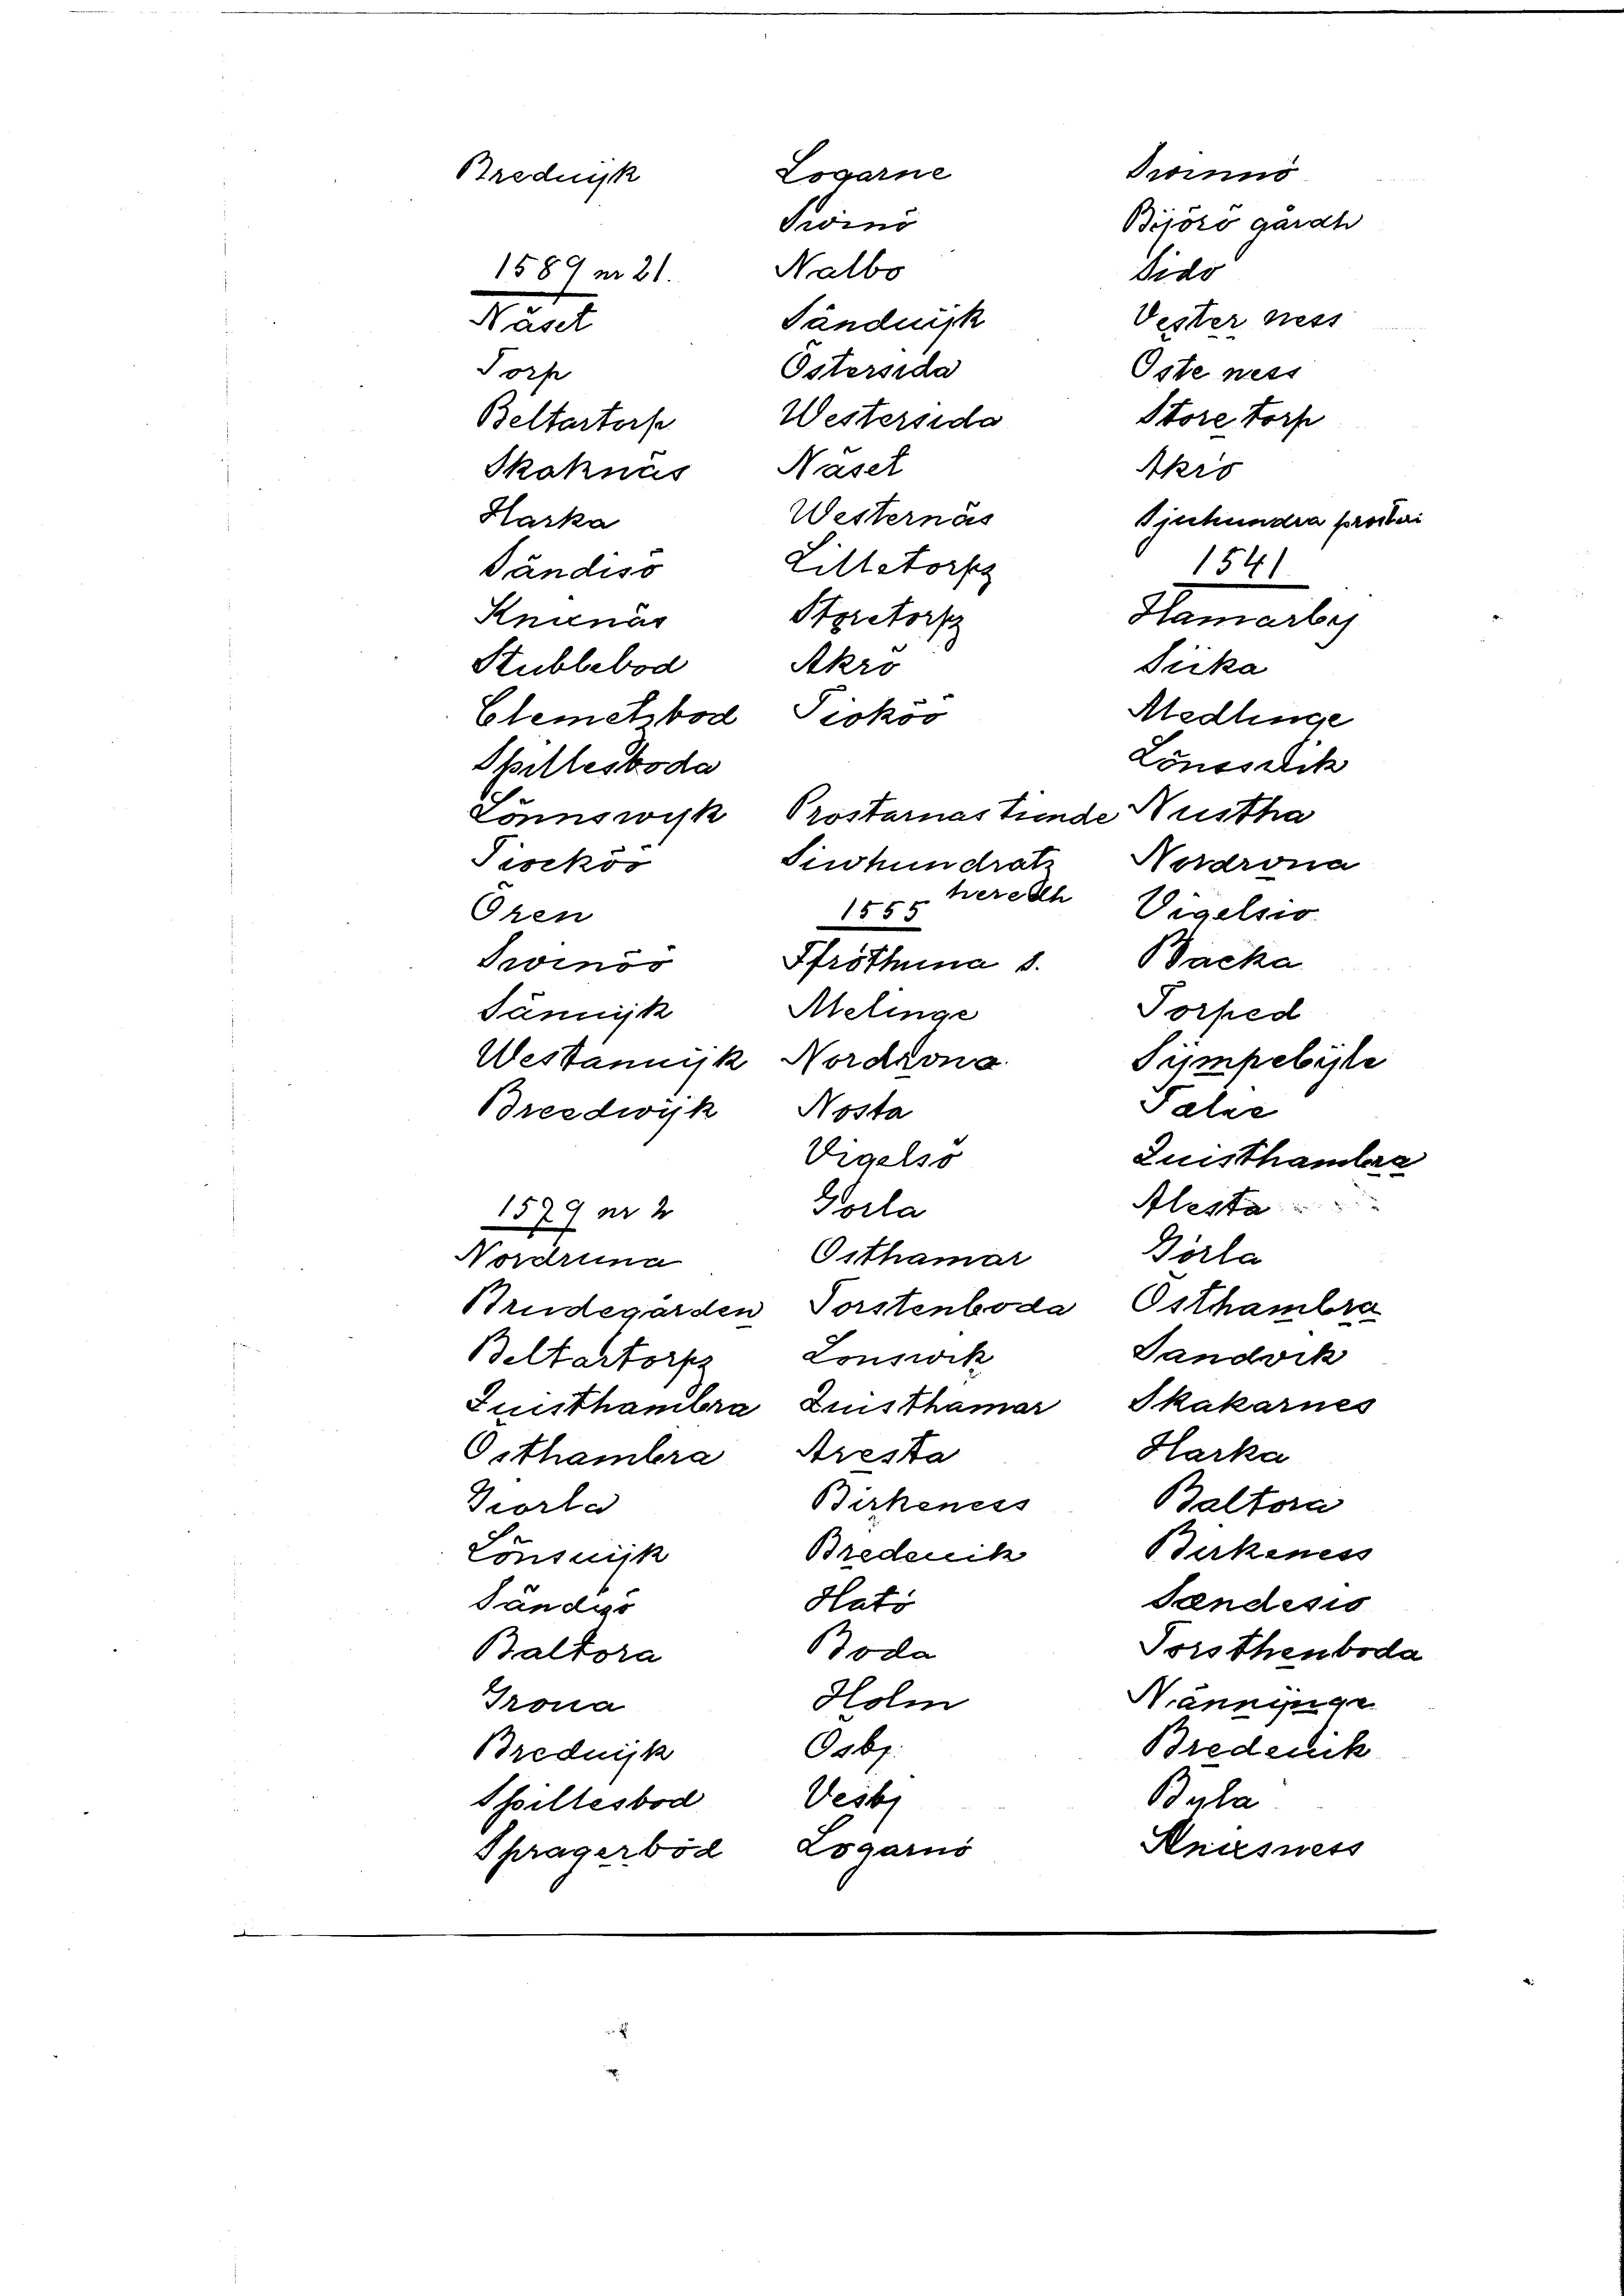 Brednijk
1589 nr 21.
Näset
Torp
Beltartorp
Skaknäs
Harka
Sändisö
Knienäs
Stubblebod
Clemetzbod
Spillesboda
Lönnswijk
Tiocköö
Ören
Swinöö
Sännijk
Westannijk
Breedwijk
1579 nr 2
Nordruna
Brudegården
Beltartorpz
Quisthambra
Osthambra
Giorla
Lönsuijk
Sändisö
Baltora
Grona
Brednijk
Spillesbod
Spragerböd
Logarne
Swinö
Nalbo
Sänduijk
Östersida
Westersida
Näset
Westernäs
Lilletorpz
Storetorpz
Akrö
Tioköö
Prostarnas tiende
Siwhundratz
heredh
1555
Ffröthuna s.
Melinge
Nordrona
Nosta
Vigelsö
Gorla
Osthamar
Torstenboda
Lonswik
Quisthamar
Aresta
Birkeness
Bredeuik
Hatö
Boda
Holm
Ösby
Vesby
Logarnö
Swinnö
Bijörö gårdh
Sidö
Vester ness
Oste ness
Store torp
Akrö
Sjuhundra prosteri
1541
Hamarby
Siika
Medlinge
Lönssuik
Nustha
Nordrona
Vigelsiö
Backa
Torped
Sijmpebijle
Quisthambra
Alesta
Görla
Östhambra
Sandvik
Skakarnes
Harka
Baltora
Birkeness
Sandesiö
Torsthenboda
Bredeuik
Byla
Kniesness